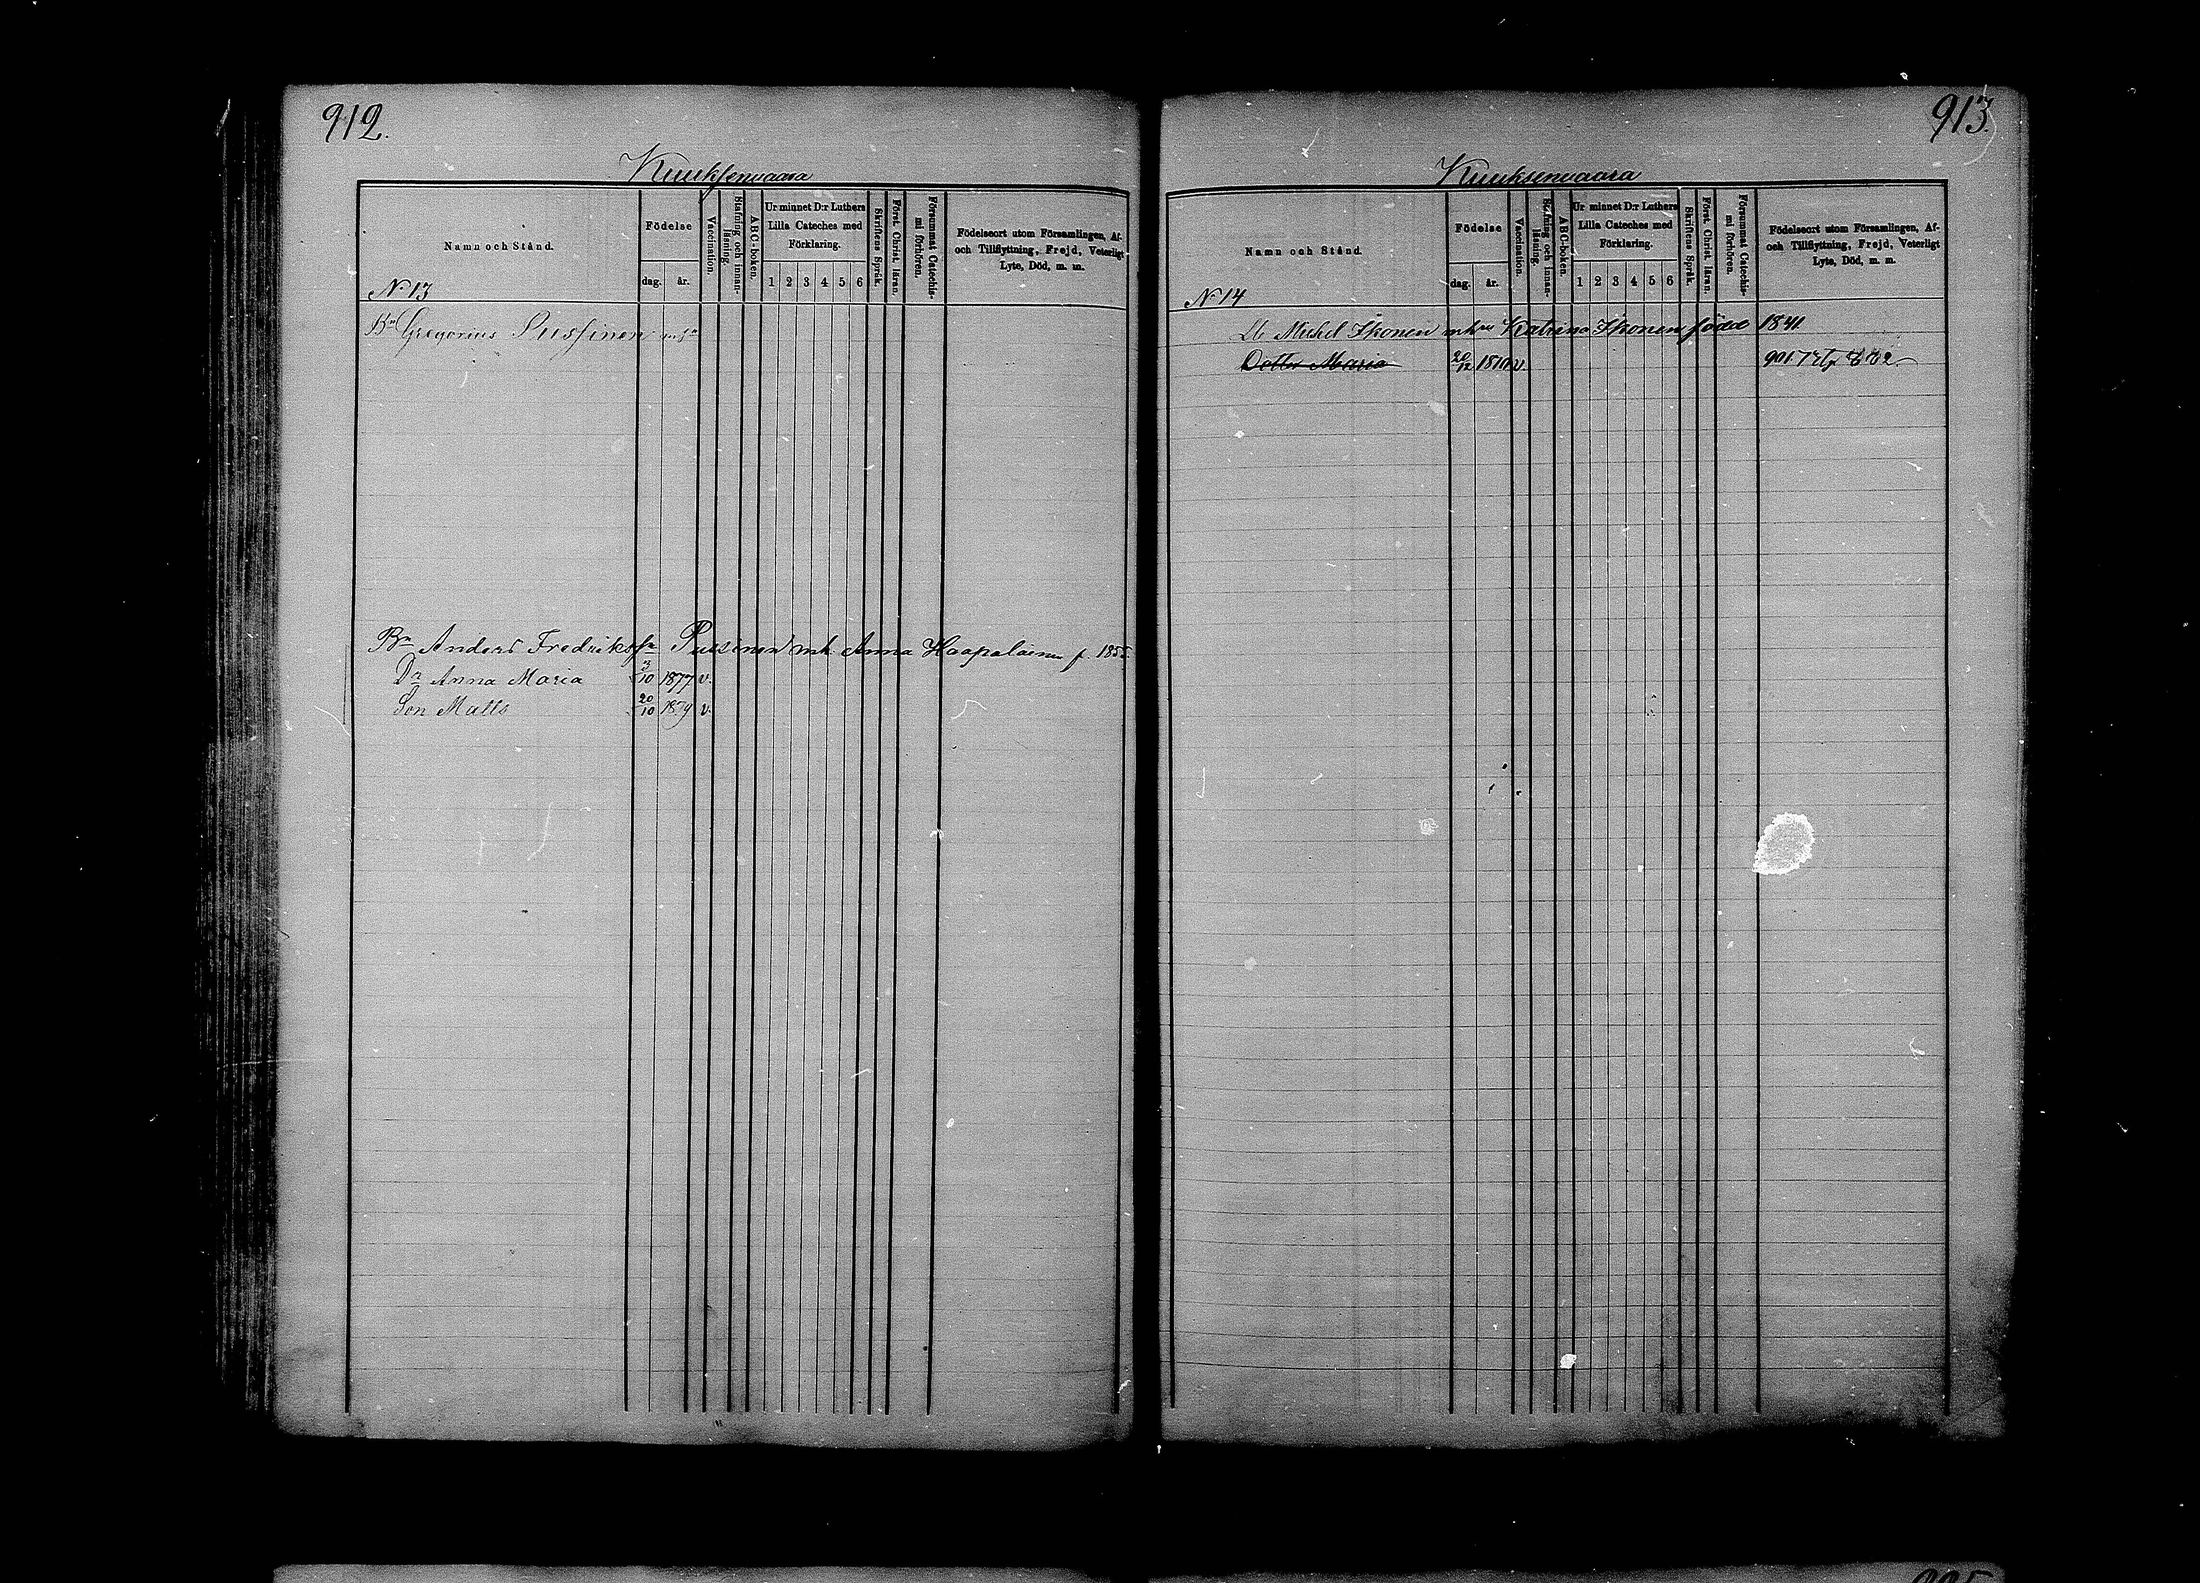 912.
Kuuksenvaara
Namn och Stånd.
Födelse
dag. år.
Vaccination.
Stafning och innan-läsning.
ABC-boken.
Ur minnet D:r Luthers Lilla Cateches med Förklaring.
1 2 3 4 5 6
Skriftens Språk.
Först. Christ. läran.
Försummat Catechis-mi förhören.
Födelseort utom Församlingen, Af- och Tillflyttning, Frejd, Veterligt Lyte, Död, m. m.
N. 13
Bn Gregorius Pussinen
Bn Anders Fredrikssn Pussinen mh. Anna Haapalainen f. 1855
Dr Anna Maria 3/10 1877 v.
Son Matts 20/10 1879 v.
913.
Kuuksenvaara
Namn och Stånd.
Födelse
dag. år.
Vaccination.
Stafning och innan-läsning.
ABC-boken.
Ur minnet D:r Luthers Lilla Cateches med Förklaring.
1 2 3 4 5 6
Skriftens Språk.
Först. Christ. läran.
Försummat Catechis-mi förhören.
Födelseort utom Församlingen, Af- och Tillflyttning, Frejd, Veterligt Lyte, Död, m. m.
N. 14
Michel Ikonen Katrina Ikonen född 1841
Dotter Maria 20/12 v. 901